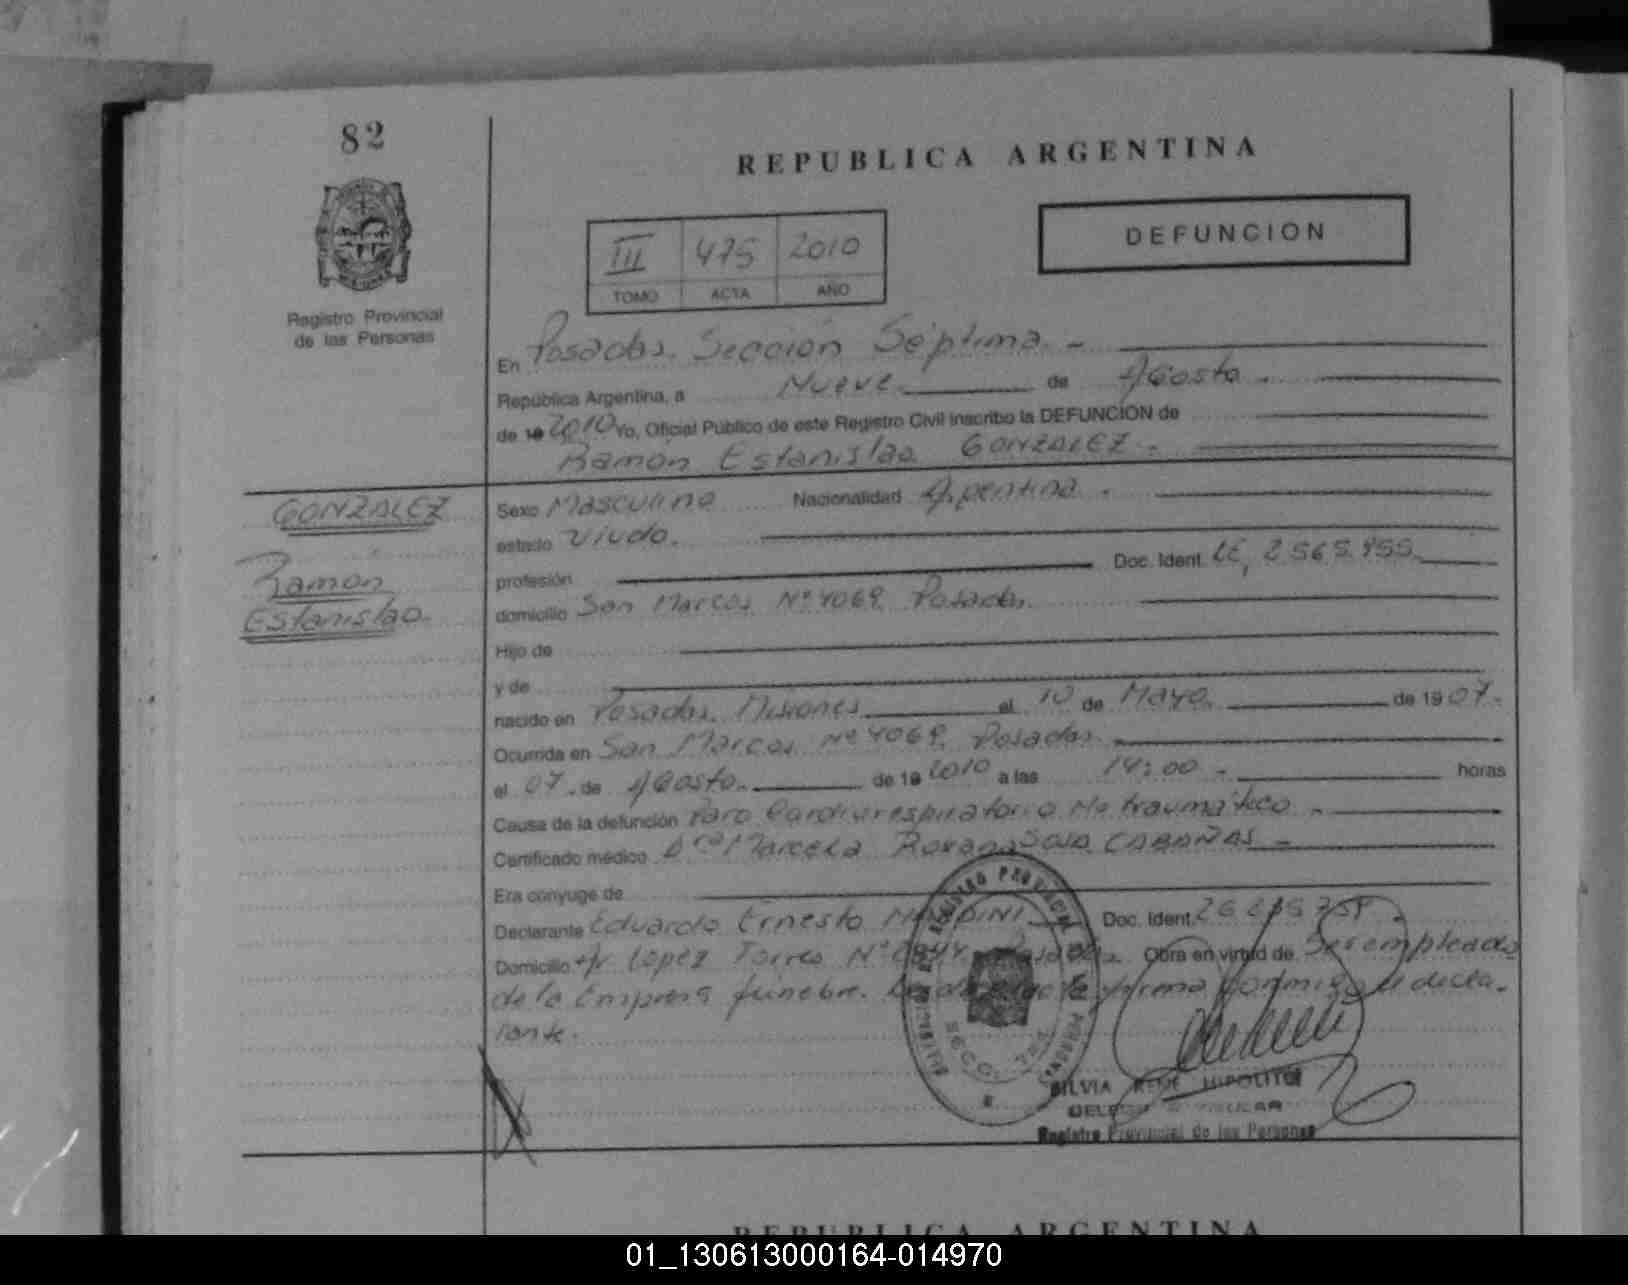 82
REPUBLICA ARGENTINA
DEFUNCION
III 475 2010
TOMO ACTA AÑO
Registro Provincial
de las Personas
En Posadas. Sección Séptima. -
República Argentina, a Nueve de Agosto.
de 19 2010 Yo, Oficial Público de este Registro Civil inscribo la DEFUNCION de
Ramón Estanislao GONZALEZ. -
GONZALEZ
Ramón
Estanislao.
Sexo Masculino Nacionalidad Argentina. -
estado Viudo.
profesión Doc. Ident. LE, 2.565.955.
domicilio San Marcos Nº 4069. Posadas.
Hijo de
y de
nacido en Posadas. Misiones el 10 de Mayo. de 1907.
Ocurrida en San Marcos Nº 4069. Posadas.
el 07. de Agosto. de 19 2010 a las 14:00 - horas
Causa de la defunción Paro Cardiorespiratorio No traumático. -
Certificado médico Dra Marcela Roxana SOSA CABAÑAS -
Era conyuge de
Declarante Eduardo Ernesto Doc. Ident.
Domicilio Av. Lopez Torres Nº Posadas. Obra en virtud de Ser empleado
de la Empresa funebre. firma conmigo el decla-
rante.
SECC. 7ma.
SILVIA RENE HIPOLITO
Registro Provincial de las Personas
REPUBLICA ARGENTINA
01_130613000164-014970